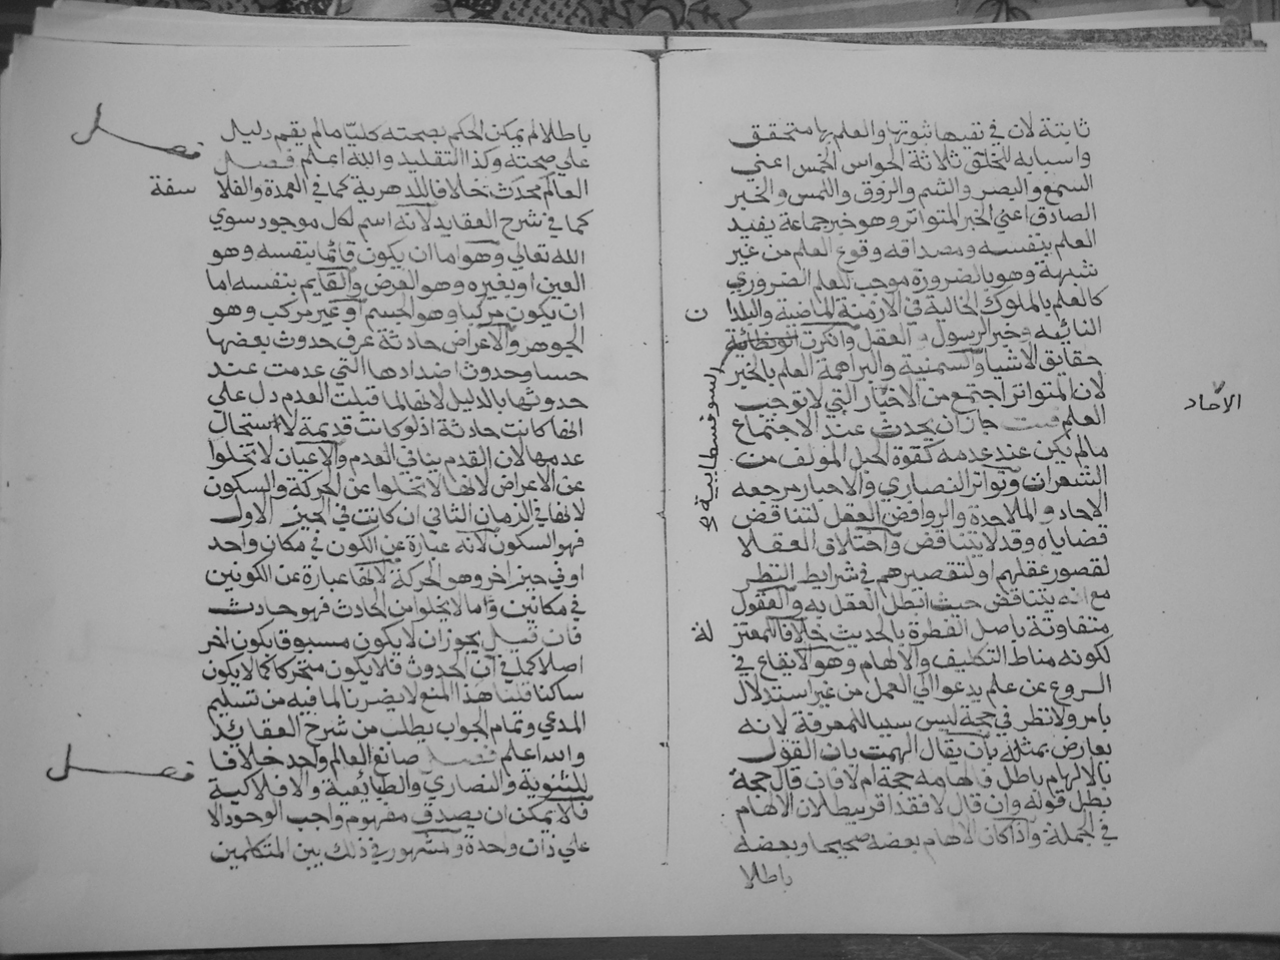 ثابتة لان في نفيها ثبوتها والعلم بها متحقق
واسبابه للخلق ثلاثة الحواس الخمس اعني
السمع والبصر والشم والذوق واللمس والخبر
الصادق اعني الخبر المتواتر وهو خبر جماعة يفيد
العلم بنفسه ومصداقه وقوع العلم من غير
شبهة وهو بالضرورة موجب للعلم الضروري
كالعلم بالملوك الخالية في الازمنة الماضية والبلدا
ن
النائيه وخبر الرسول و العقل وانكرت
السوفسطايية
حقايق الاشيا والسمنية والبراهمة العلم بالخبر
لان المتواتر اجتمع من الاخبار التي لا توجب
الآحاد
العلم قلت جاز ان يحدث عند الاجتماع
مالم يكن عند عدمه كقوة الحبل المولف من
الشعرات وتواتر النصاري والاحبار مرجعه
الاحاد والملاحدة والروافض العقل لتناقض
قضاياه وقد لا يتناقض واختلاف العقلا
لقصور عقلهم او لتقصيرهم في شرايط النظر
مع انه يتناقض حيث ابطل العقل به والعقول
متفاوتة باصل الفطرة بالحديث خلافا للمعتز
لة
لكونه مناط التكليف والالهام وهو الايقاع في
الروع عن علم يدعوا الي العمل من غير استدلال
بامر ولا نظر في حجة ليس سببا للمعرفة لانه
يعارض بمثله بان يقال الهمت بان القول
بالالهام باطل فالهامه حجة ام لا فان قال حجة
بطل قوله وان قال لا فقد اقر ببطلان الالهام
في الجملة واذا كان الالهام بعضه صحيحا وبعضه
باطلا
باطلا لم يمكن الحكم بصحته كليا مالم يقم دليل
علي صحته وكذا التقليد والله اعلم فصل
فصل
العالم محدث خلافا للدهرية كما في العمدة والفلا
سفة
كما في شرح العقايد لانه اسم لكل موجود سوي
الله تعالي وهو اما ان يكون قائما بنفسه وهو
العين او بغيره وهو العرض والقايم بنفسه اما
ان يكون مركبا وهو الجسم او غير مركب وهو
الجوهر والاعراض حادثة عرف حدوث بعضها
حسا وحدوث اضدادها التي عدمت عند
حدوثها بالدليل لانها لما قبلت العدم دل علي
انها كانت حادثة اذ لو كانت قديمة لاستحال
عدمها لان القدم ينافي العدم والاعيان لا تخلوا
عن الاعراض لانها لا تخلوا عن الحركة والسكون
لانها في الزمان الثاني ان كانت في الحيز الاول
فهو السكون لانه عبارة عن الكون في مكان واحد
او في حيز اخر وهو الحركة لانها عبارة عن الكونين
في مكانين وما لا يخلوا من الحادث فهو حادث
فان قيل يجوز ان لا يكون مسبوقا بكون اخر
اصلا كما في آن الحدوث فلا يكون متحركا كما لا يكون
ساكنا قلنا هذا المنع لا يضرنا لما فيه من تسليم
المدعي وتمام الجواب يطلب من شرح العقائد
والله اعلم فصل صانع العالم واحد خلافا
فصل
للثنوية والنصاري والطبائعية والافلاكية
فلا يمكن ان يصدق مفهوم واجب الوجود الا
علي ذات واحدة ومشهور في ذلك بين المتكلمين